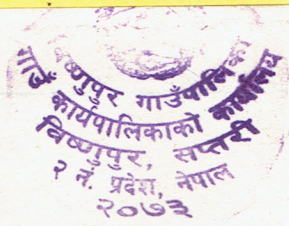 विष्णुपुर गाउँपालिका
गाउँ कार्यपालिकाको कार्यालय
विष्णुपुर, सप्तरी
२ नं. प्रदेश, नेपाल
२०७३